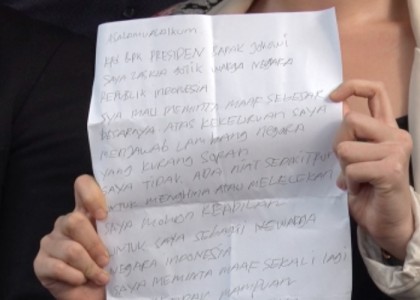 ASSALAMUALAIKUM
KPD BPK PRESIDEN BAPAK JOKOWI
SAYA ZASKIA GOTIK WARGA NEGARA
REPUBLIK INDONESIA
SYA MAU MEMINTA MAAF SEBESAR
BESARNYA ATAS KEKELIRUAN SAYA
MENJAWAB LAMBANG NEGARA
YANG KURANG SOPAN
SAYA TIDAK ADA NIAT SEDIKITPUN
UNTUK MENGHINA ATAU MELECEKAN
SAYA MOHON KEADILAN
UNTUK SAYA SEBAGAI
NEGARA INDONESIA
SAYA MEMINTA MAAF SEKALI LAGI